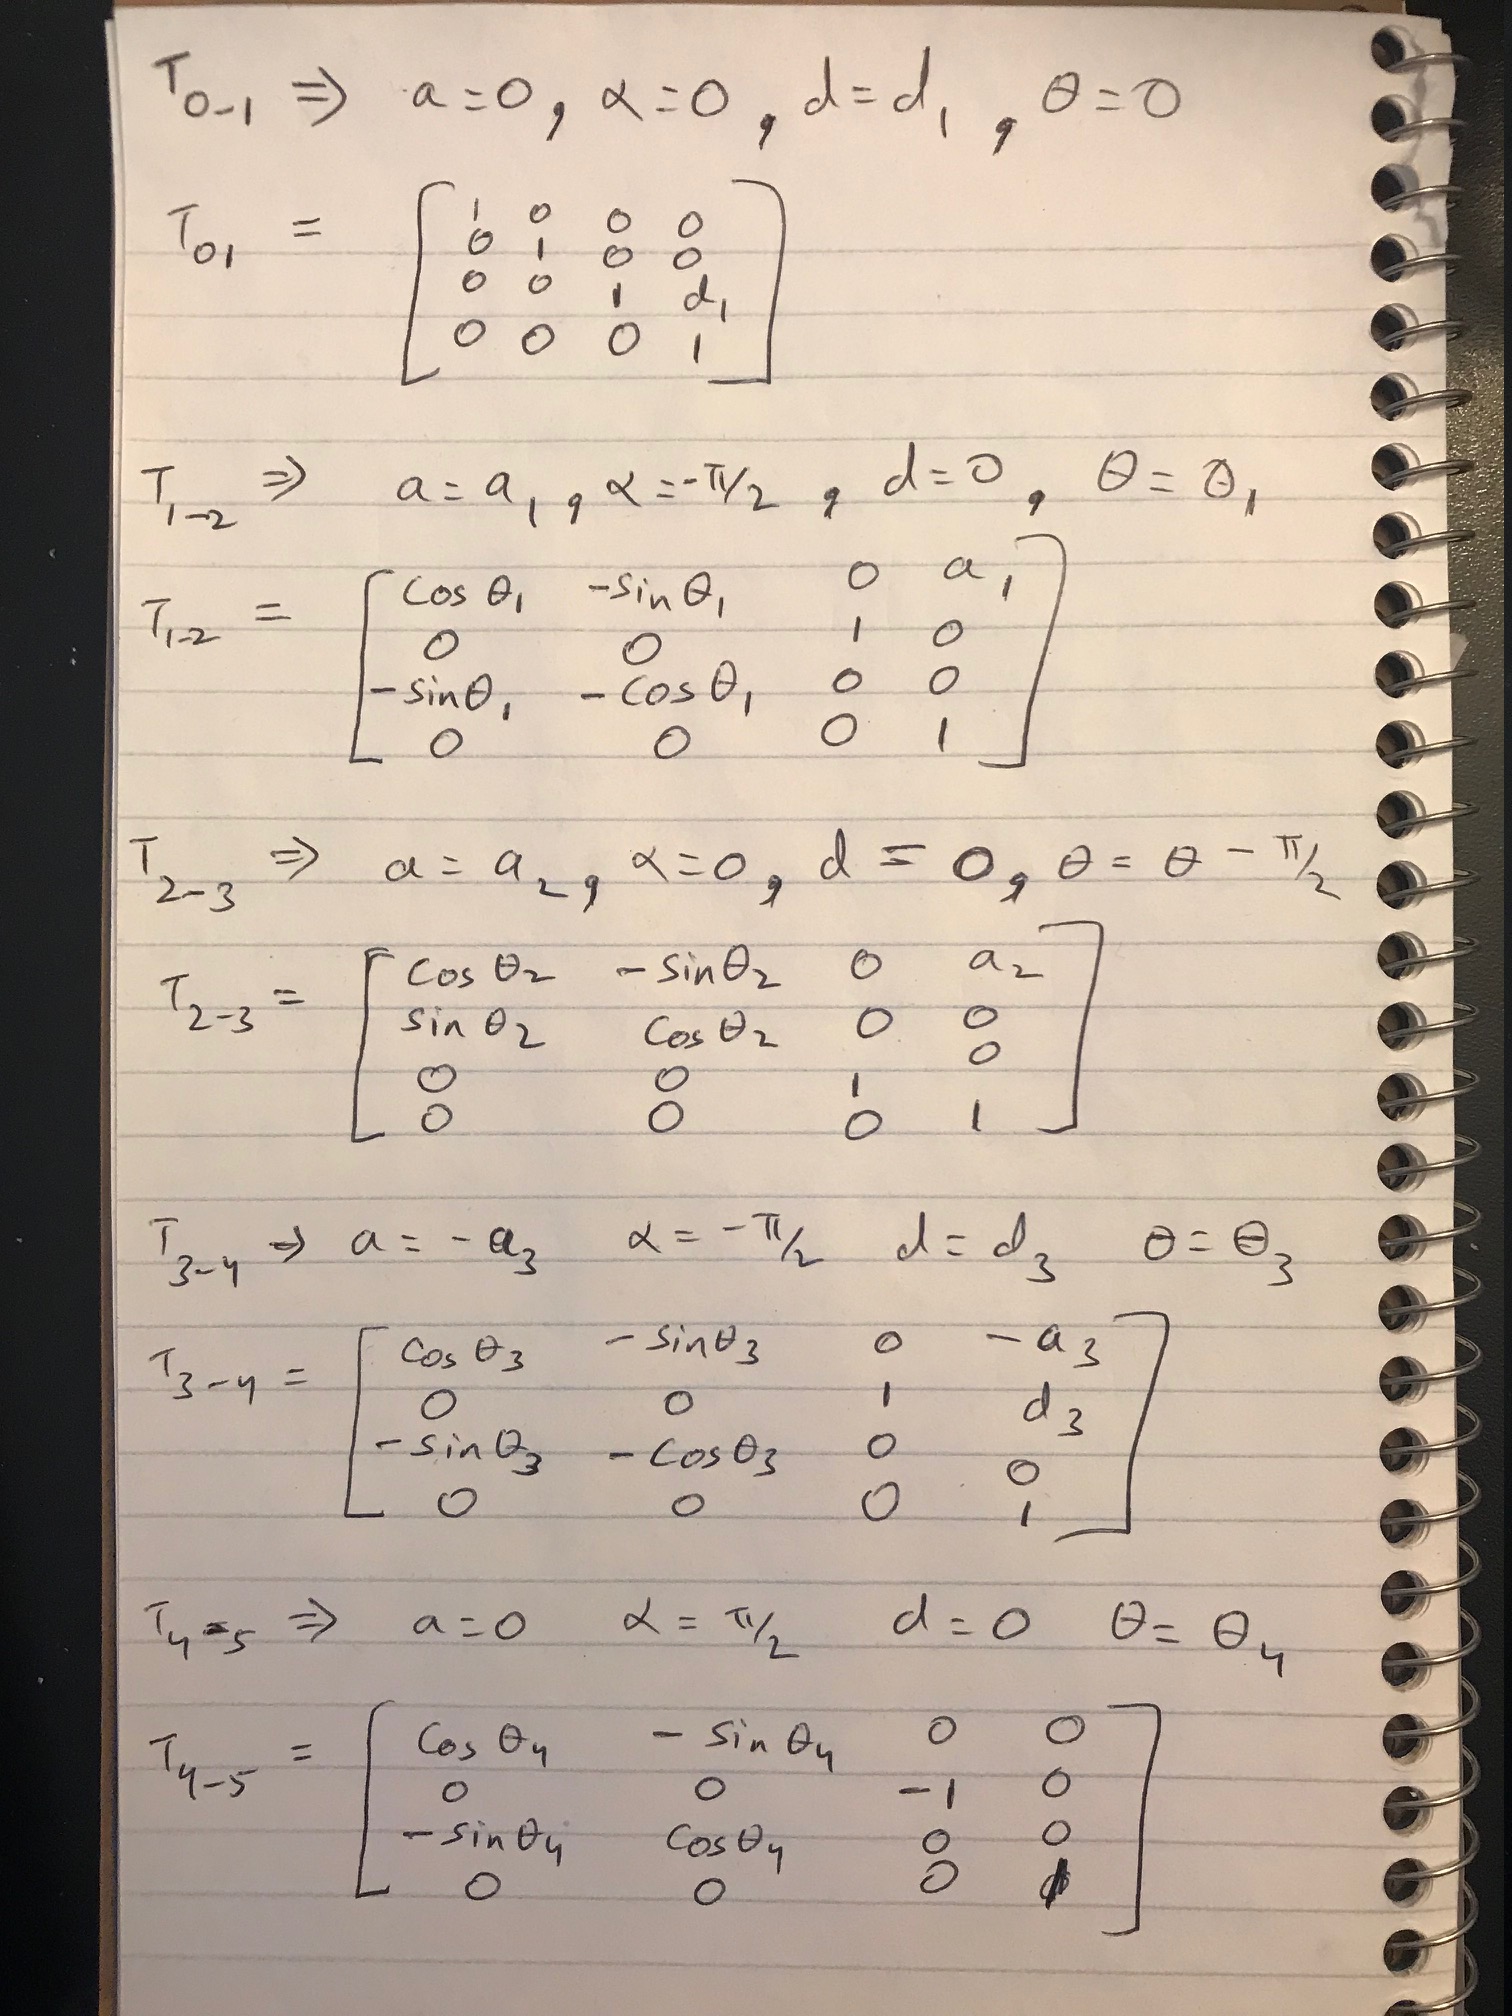 T0-1 ⇒ a=0, α=0, d=d1, θ=0
T01 =
1 0 0 0
0 1 0 0
0 0 1 d1
0 0 0 1
T1-2 ⇒ a=a1, α=-π/2, d=0, θ=θ1
T1-2 =
cosθ1 -sinθ1 0 a1
0 0 1 0
-sinθ1 -cosθ1 0 0
0 0 0 1
T2-3 ⇒ a=a2, α=0, d=0, θ=θ-π/2
T2-3 =
cosθ2 -sinθ2 0 a2
sinθ2 cosθ2 0 0
0 0 1 0
0 0 0 1
T3-4 → a=-a3 α=-π/2 d=d3 θ=θ3
T3-4 =
cosθ3 -sinθ3 0 -a3
0 0 1 d3
-sinθ3 -cosθ3 0 0
0 0 0 1
T4-5 ⇒ a=0 α=π/2 d=0 θ=θ4
T4-5 =
cosθ4 -sinθ4 0 0
0 0 -1 0
-sinθ4 cosθ4 0 0
0 0 0 1